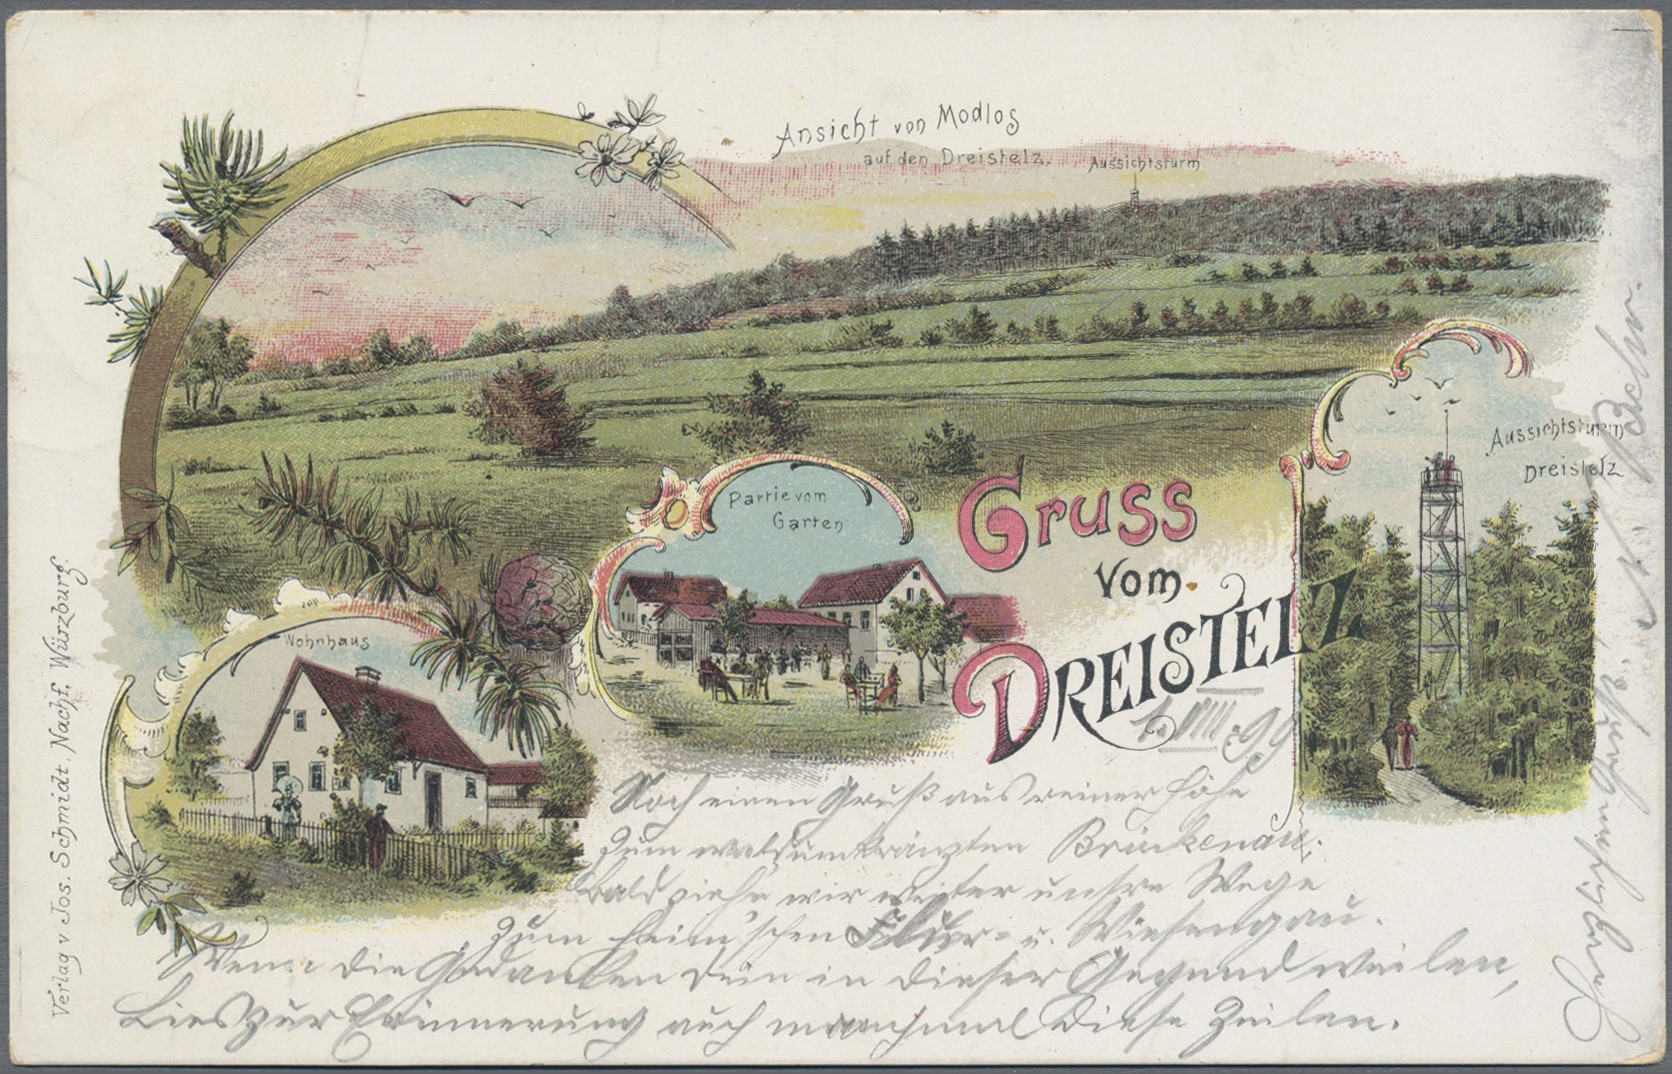 Ansicht von Modlos
auf den Dreistelz.
Aussichtsturm
Aussichtsturm
Dreistelz
Partie vom
Garten
Gruss
vom
DREISTELZ
Wohnhaus
Verlag v Jos. Schmidt, Nachf. Würzburg
99
Noch einen Gruß aus reiner Höhe
Zum waldumkränzten Brückenau.
Bald ziehn wir weiter unsre Wege
Zum heim'schen Flur- u. Wiesengau.
Wenn die Gedanken Dein in dieser Gegend weilen,
Lies zur Erinnerung auch manchmal diese Zeilen.